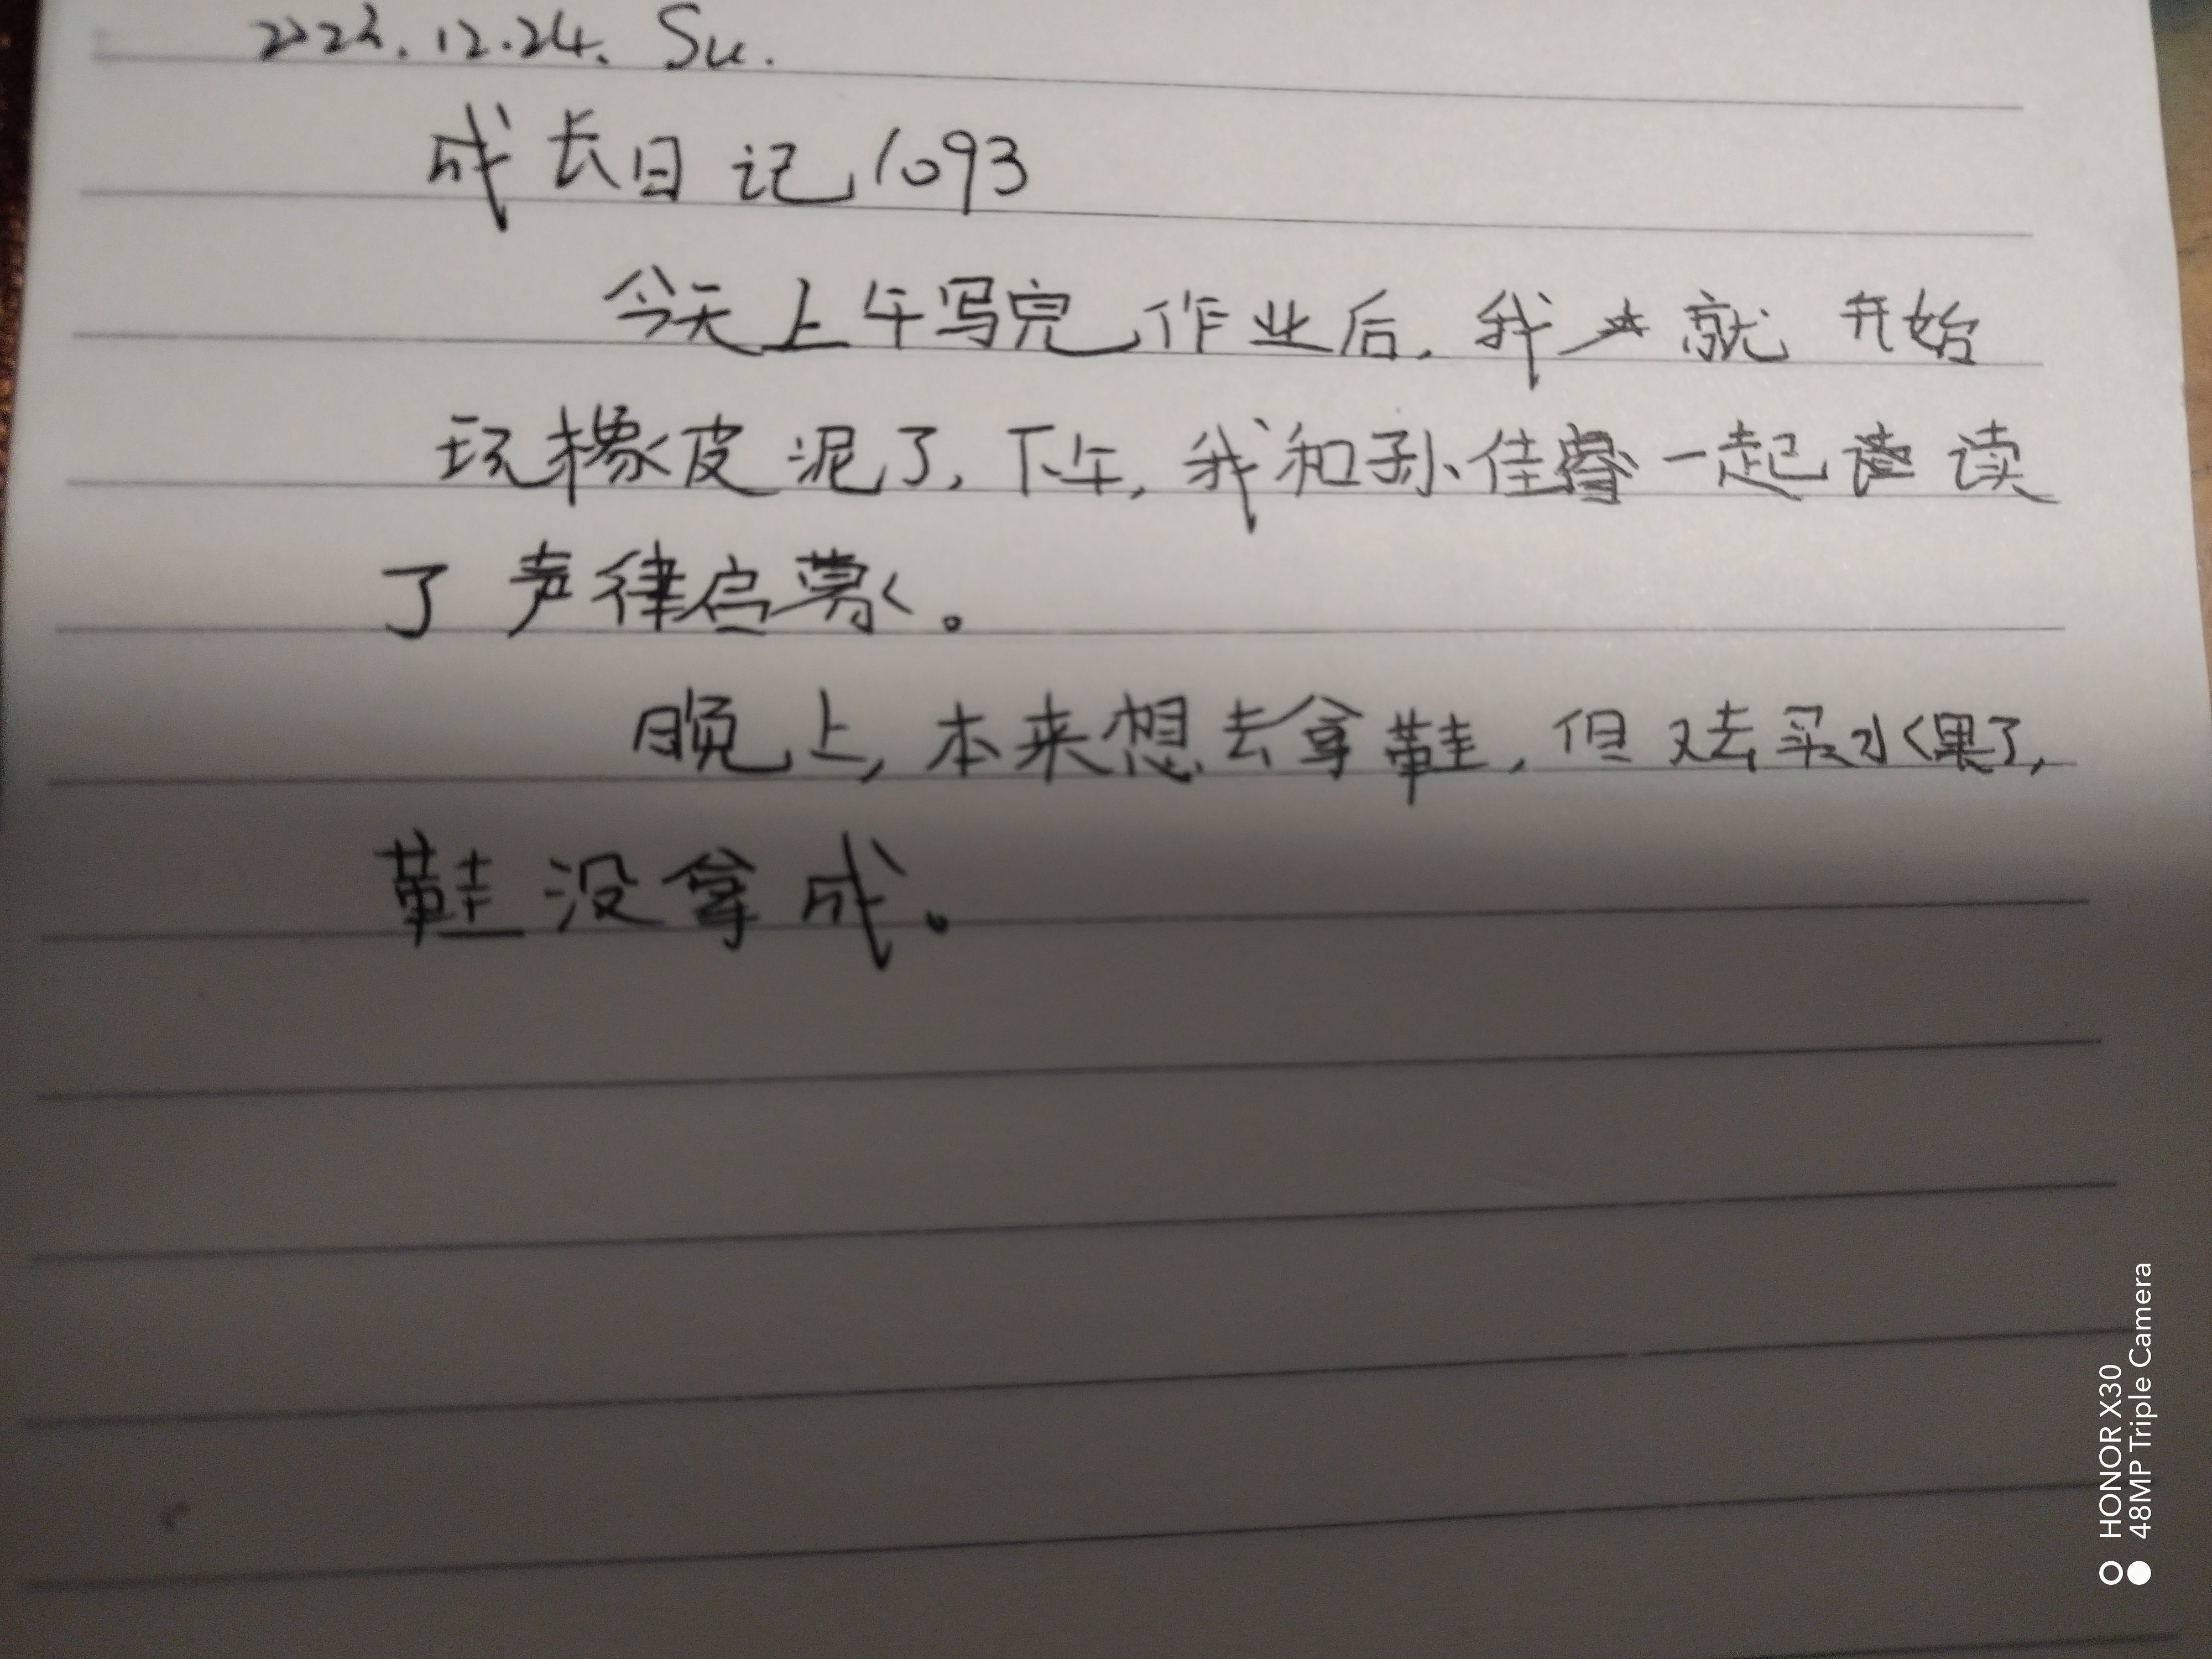 2023.12.24. Su.
成长日记1093
今天上午写完作业后，我就开始
玩橡皮泥了，下午，我和孙佳睿一起读
了声律启蒙。
晚上，本来想去拿鞋，但又去买水果了，
鞋没拿成。
HONOR X30
48MP Triple Camera